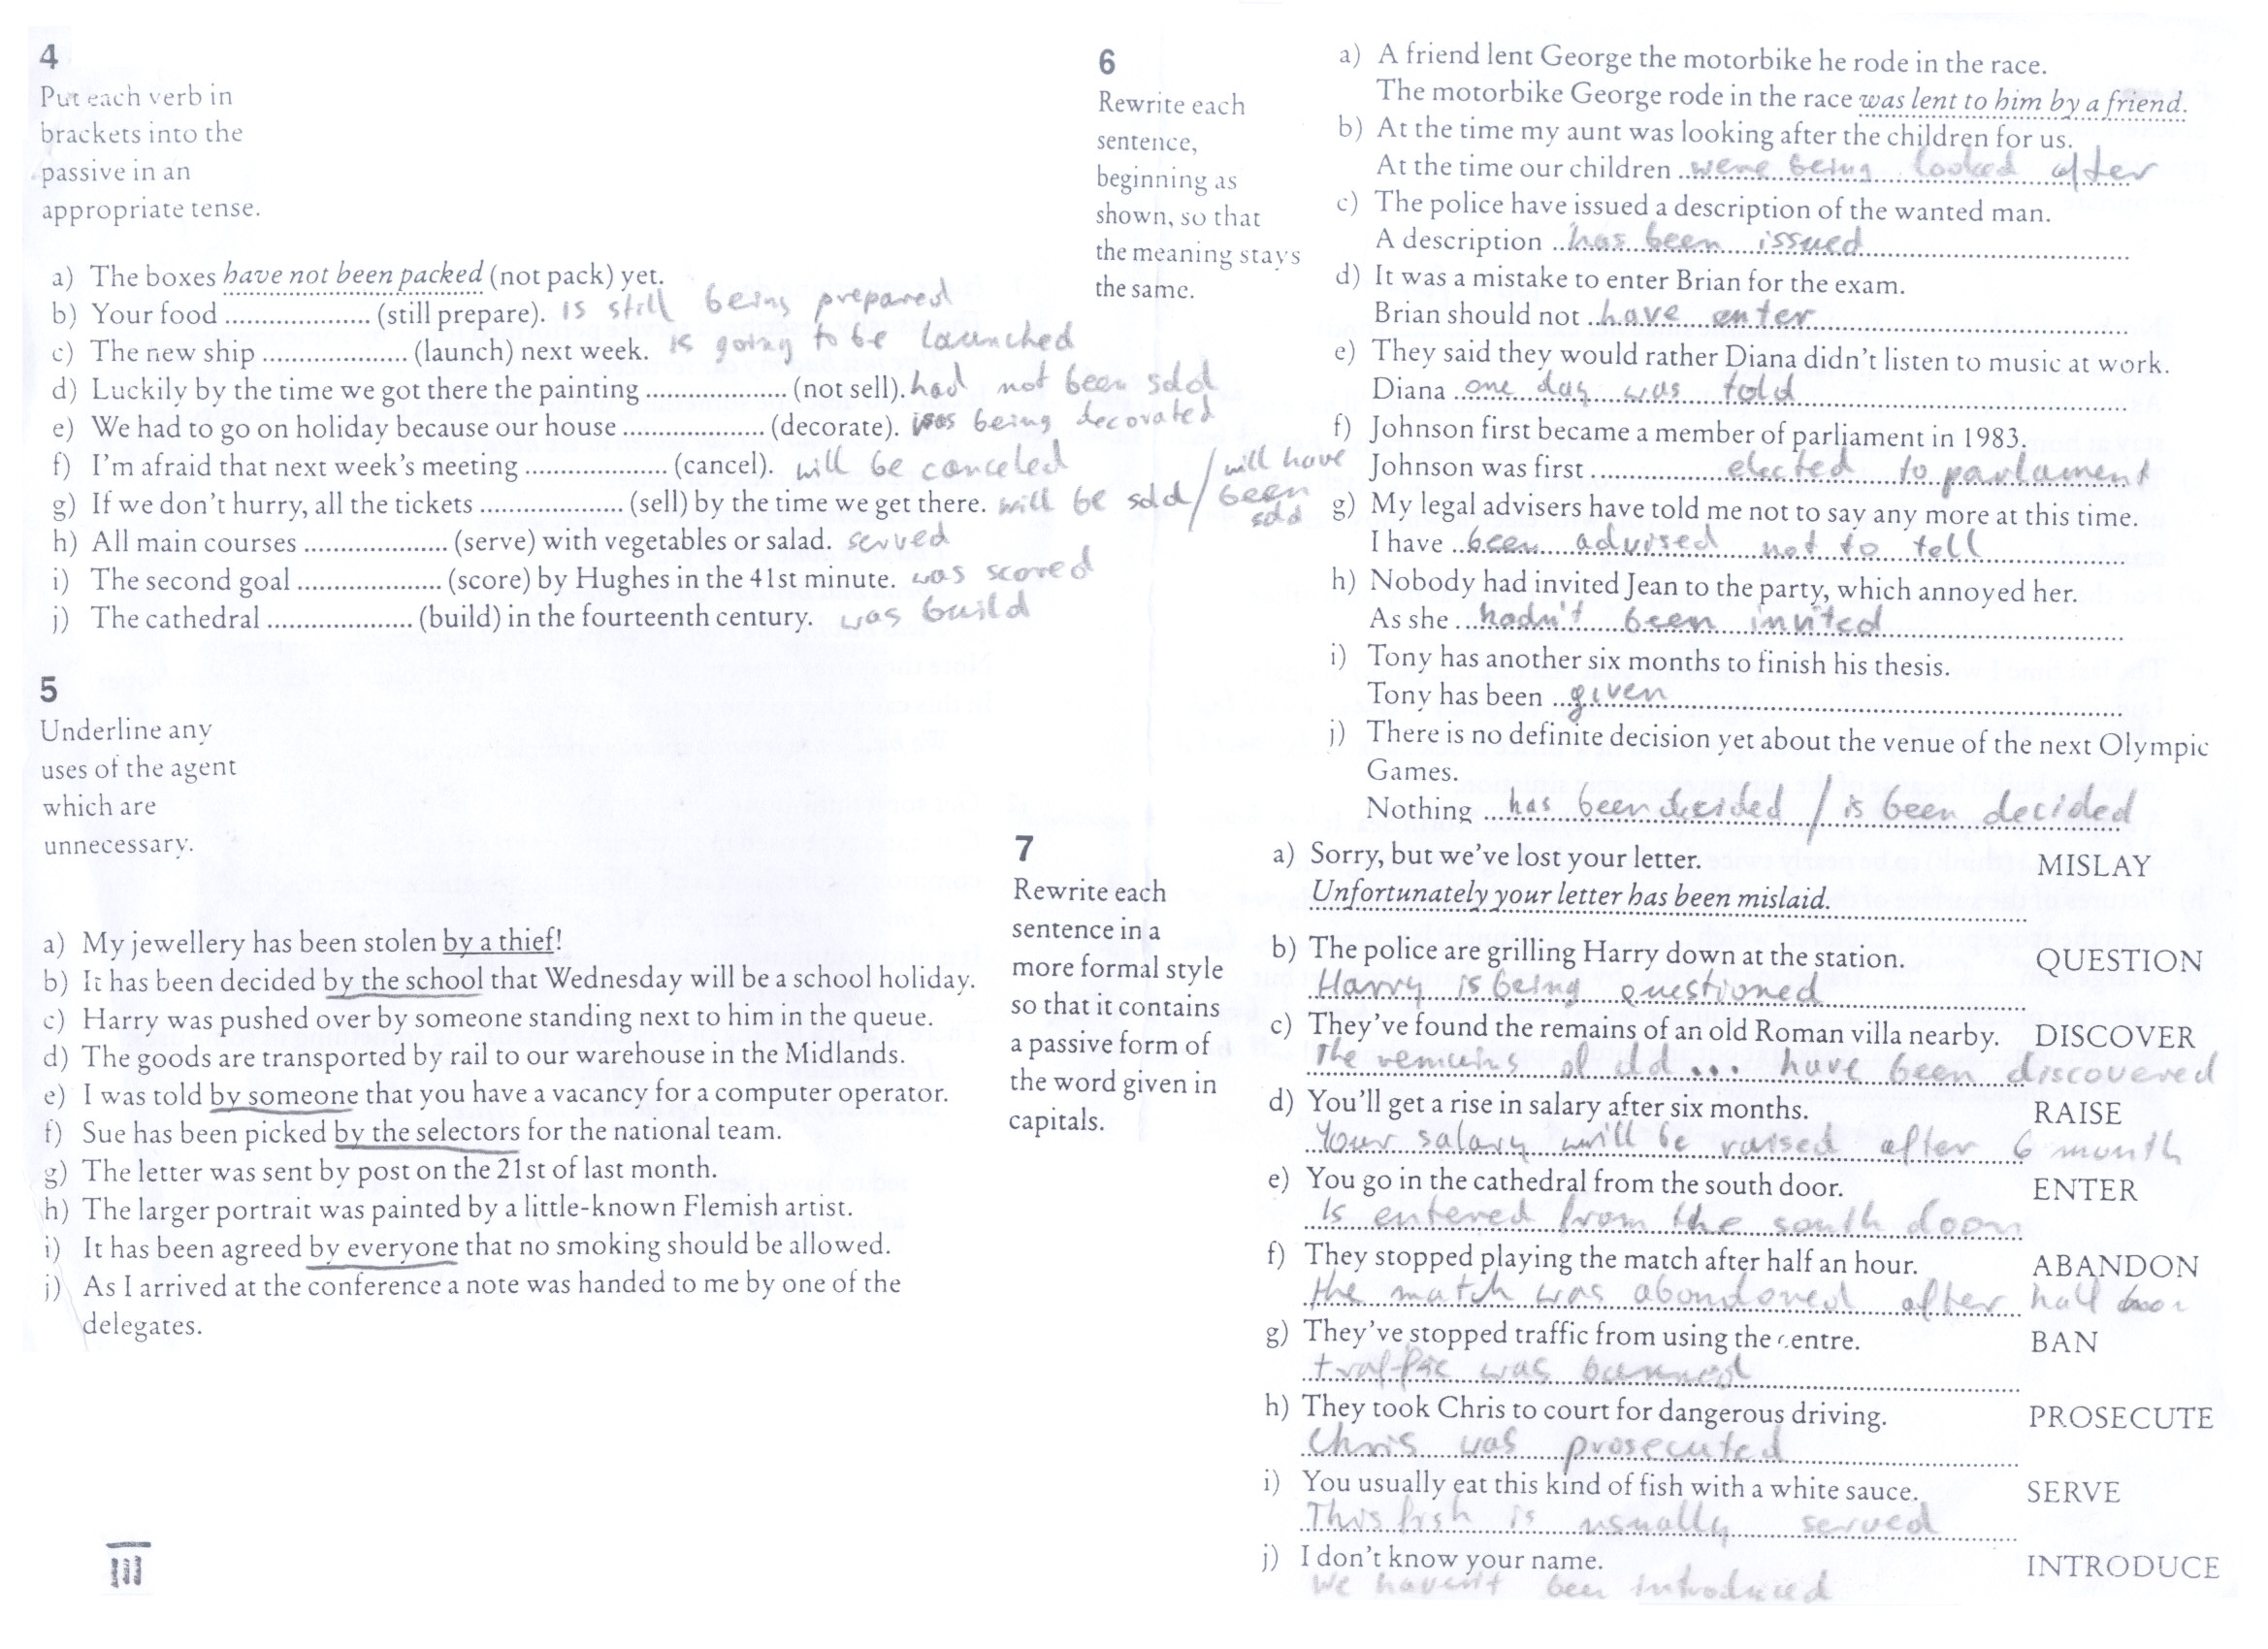 4
Put each verb in
brackets into the
passive in an
appropriate tense.
a) The boxes have not been packed (not pack) yet.
b) Your food .................... (still prepare). is still being prepared
c) The new ship .................... (launch) next week. is going to be launched
d) Luckily by the time we got there the painting .................... (not sell). had not been sold
e) We had to go on holiday because our house .................... (decorate). was being decorated
f) I'm afraid that next week's meeting .................... (cancel). will be canceled
g) If we don't hurry, all the tickets .................... (sell) by the time we get there. will be sold / will have been sold
h) All main courses .................... (serve) with vegetables or salad. served
i) The second goal .................... (score) by Hughes in the 41st minute. was scored
j) The cathedral .................... (build) in the fourteenth century. was build
5
Underline any
uses of the agent
which are
unnecessary.
a) My jewellery has been stolen by a thief!
b) It has been decided by the school that Wednesday will be a school holiday.
c) Harry was pushed over by someone standing next to him in the queue.
d) The goods are transported by rail to our warehouse in the Midlands.
e) I was told by someone that you have a vacancy for a computer operator.
f) Sue has been picked by the selectors for the national team.
g) The letter was sent by post on the 21st of last month.
h) The larger portrait was painted by a little-known Flemish artist.
i) It has been agreed by everyone that no smoking should be allowed.
j) As I arrived at the conference a note was handed to me by one of the
delegates.
III
6
Rewrite each
sentence,
beginning as
shown, so that
the meaning stays
the same.
a) A friend lent George the motorbike he rode in the race.
The motorbike George rode in the race was lent to him by a friend.
b) At the time my aunt was looking after the children for us.
At the time our children were being looked after
c) The police have issued a description of the wanted man.
A description has been issued
d) It was a mistake to enter Brian for the exam.
Brian should not have enter
e) They said they would rather Diana didn't listen to music at work.
Diana one day was told
f) Johnson first became a member of parliament in 1983.
Johnson was first elected to parlament
g) My legal advisers have told me not to say any more at this time.
I have been advised not to tell
h) Nobody had invited Jean to the party, which annoyed her.
As she hadn't been invited
i) Tony has another six months to finish his thesis.
Tony has been given
j) There is no definite decision yet about the venue of the next Olympic
Games.
Nothing has been decided / is been decided
7
Rewrite each
sentence in a
more formal style
so that it contains
a passive form of
the word given in
capitals.
a) Sorry, but we've lost your letter. MISLAY
Unfortunately your letter has been mislaid.
b) The police are grilling Harry down at the station. QUESTION
Harry is being questioned
c) They've found the remains of an old Roman villa nearby. DISCOVER
The remains of old ... have been discovered
d) You'll get a rise in salary after six months. RAISE
Your salary will be raised after 6 month
e) You go in the cathedral from the south door. ENTER
Is entered from the south door
f) They stopped playing the match after half an hour. ABANDON
the match was abandoned after half
g) They've stopped traffic from using the centre. BAN
traffic was banned
h) They took Chris to court for dangerous driving. PROSECUTE
Chris was prosecuted
i) You usually eat this kind of fish with a white sauce. SERVE
This fish is usually served
j) I don't know your name. INTRODUCE
We haven't been introduced